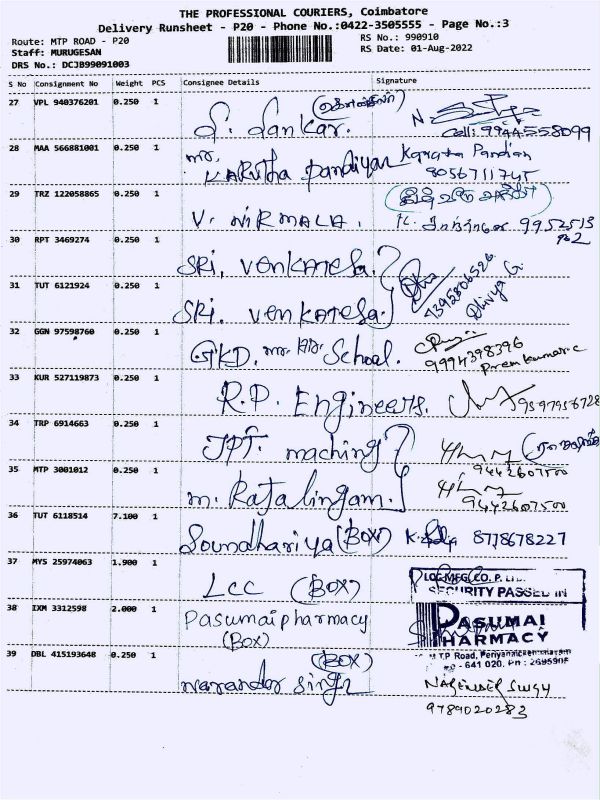 THE PROFESSIONAL COURIERS, Coimbatore
Delivery Runsheet - P20 - Phone No.:0422-3505555 - Page No.:3
Route: MTP ROAD - P20
RS No.: 990910
Staff: MURUGESAN
RS Date: 01-Aug-2022
DRS No.: DCJB99091003
S No Consignment No Weight PCS Consignee Details Signature
27 VPL 940376201 0.250 1 S. Sankar. Cell: 9944558099
28 MAA 566881001 0.250 1 mr. KARUtha Pandiyan Karutha Pandian
8056711745
29 TRZ 122058865 0.250 1 V. NIRMALA. 9952513
30 RPT 3469274 0.250 1 SRI. venkatesa.
31 TUT 6121924 0.250 1 SRI. venkatesa. 7395806526 Dhivya G.
32 GGN 97598760 0.250 1 GKD. mr. School. 9994398396
Premkumar.c
33 KUR 527119873 0.250 1 R.P. Engineers. 9597956728
34 TRP 6914663 0.250 1 JPT. maching 9442607500
35 MTP 3001012 0.250 1 m. Rajalingam. 9442607500
36 TUT 6118514 7.100 1 Soundhariya (BOX) 8778678227
37 MYS 25974063 1.900 1 LCC (BOX)
SECURITY PASSED IN
38 IXM 3312598 2.000 1 Pasumai pharmacy
(BOX)
PASUMAI
PHARMACY
M.T.P Road, Periyanaickenpalayam
- 641 020. Ph : 2695906
39 DBL 415193648 0.250 1 (BOX)
narandar Singh
9789020283